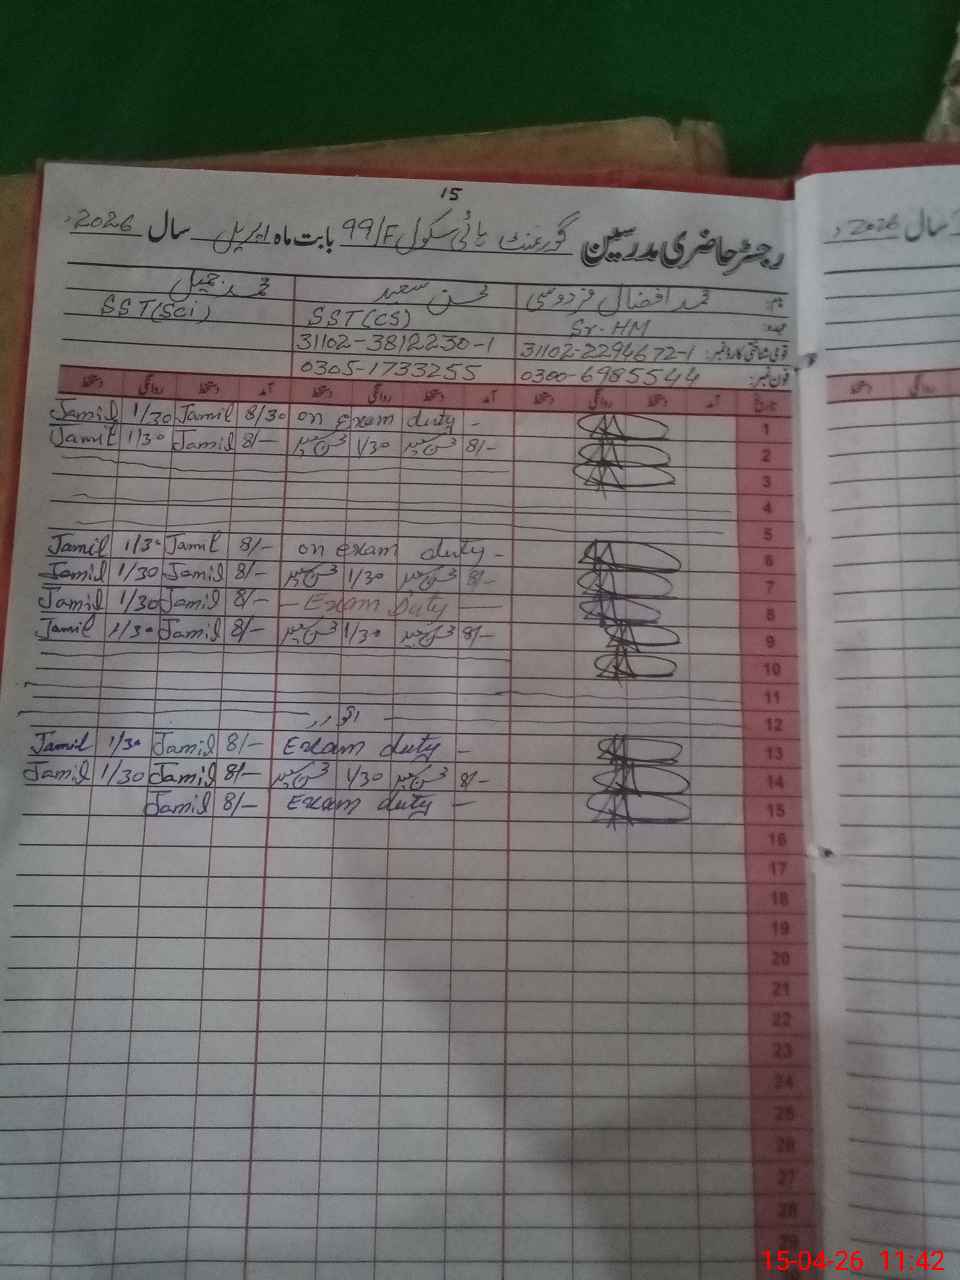 15
رجسٹر حاضری مدرسین گورنمنٹ ہائی سکول 99/F بابت ماہ اپریل سال 2026ء
سال 2026ء
نام: محمد افضال فردوسی محسن سعید محمد جمیل
عہدہ: Sr. HM SST(CS) SST(Sci)
قومی شناختی کارڈ نمبر: 31102-2294672-1 31102-3812230-1
فون نمبر: 0300-6985544 0305-1733255
تاریخ آمد دستخط روانگی دستخط آمد دستخط روانگی دستخط آمد دستخط روانگی دستخط
روانگی دستخط
Jamil 1/30 Jamil 8/30 on exam duty - 1
Jamil 1/30 Jamil 8/- 1/30 8/- 2
3
4
5
Jamil 1/30 Jamil 8/- on exam duty - 6
Jamil 1/30 Jamil 8/- 1/30 8/- 7
Jamil 1/30 Jamil 8/- - Exam Duty - 8
Jamil 1/30 Jamil 8/- 1/30 8/- 9
10
11
اتوار 12
Jamil 1/30 Jamil 8/- Exam duty - 13
Jamil 1/30 Jamil 8/- 1/30 8/- 14
Jamil 8/- Exam duty - 15
16
17
18
19
20
21
22
23
24
25
26
27
28
29
15-04-26 11:42